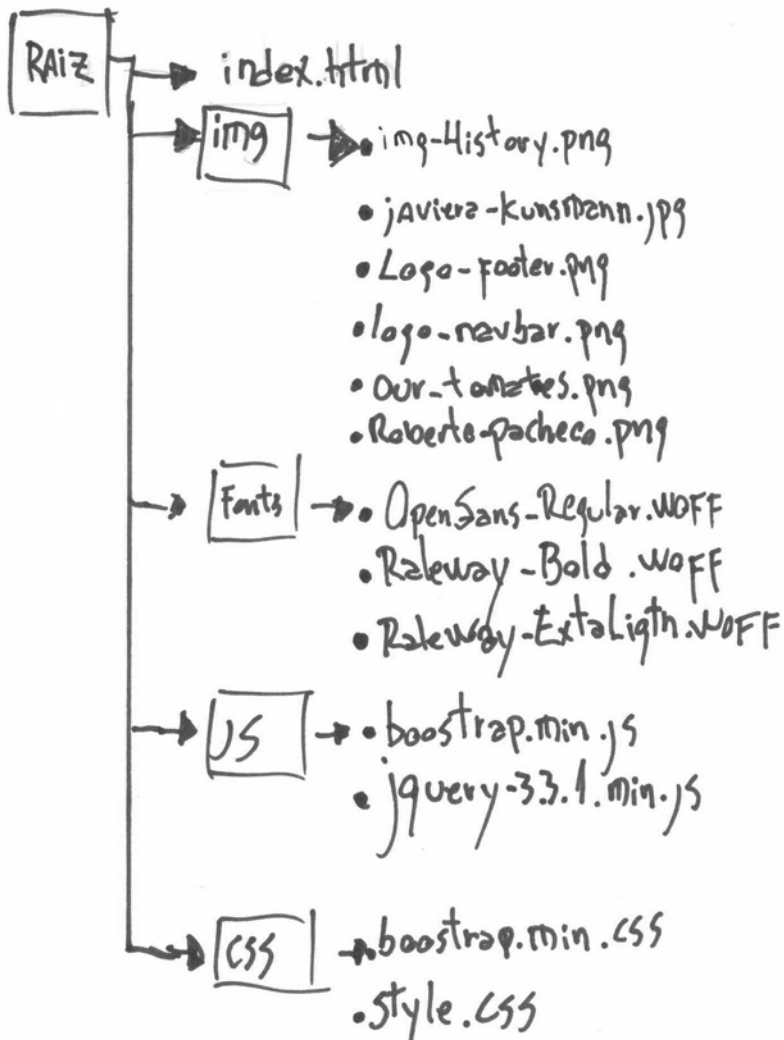 RAiZ
index.html
img
img-History.png
jAviera-Kunstmann.jpg
Logo-footer.png
logo-navbar.png
our-tomatoes.png
Roberto-pacheco.png
Fonts
OpenSans-Regular.WOFF
Raleway-Bold.WOFF
Raleway-ExtaLigth.WOFF
JS
boostrap.min.js
jquery-3.3.1.min.js
CSS
boostrap.min.css
style.css